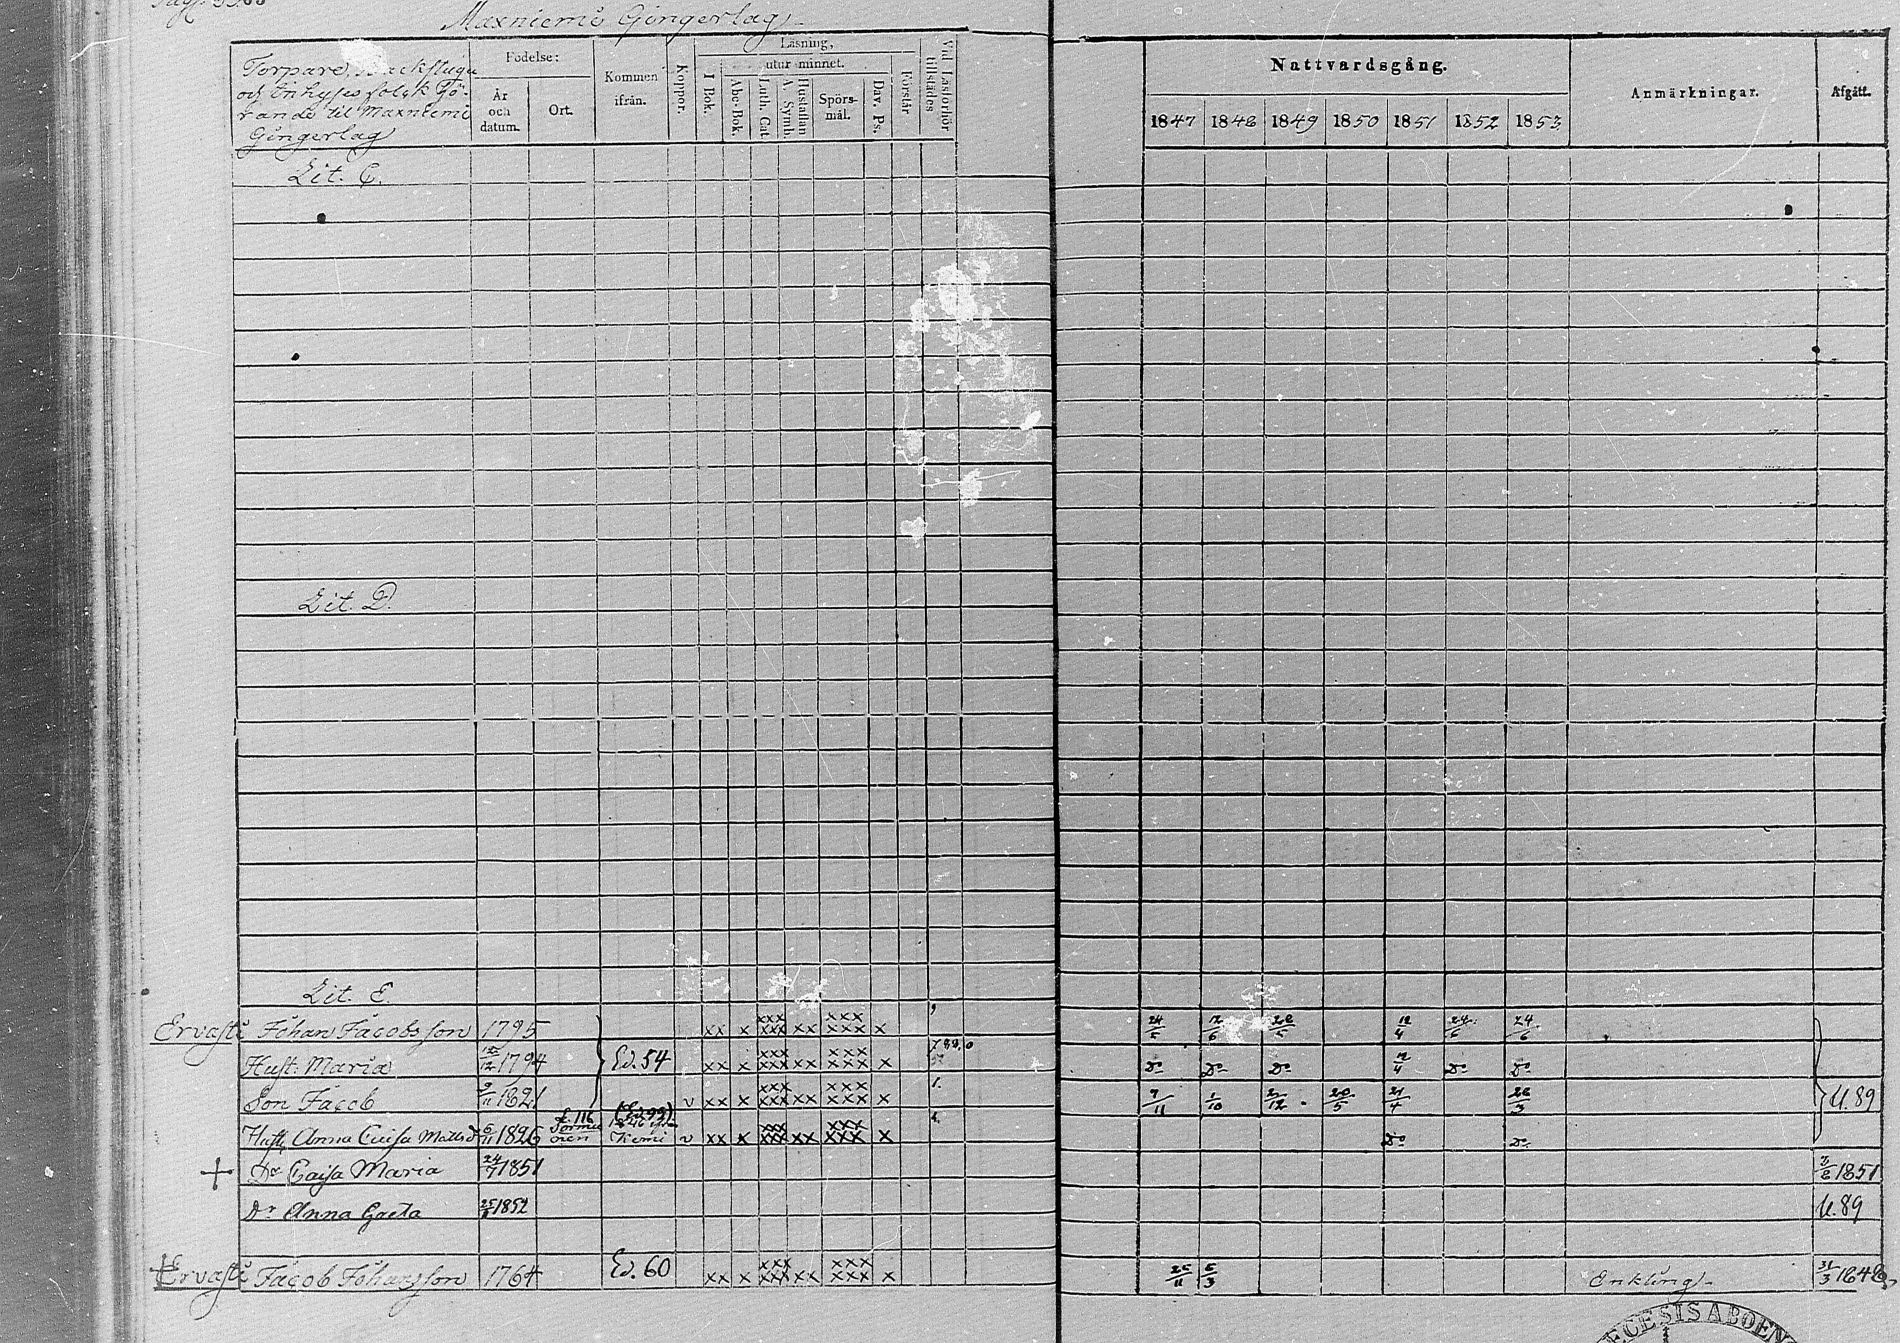 Maxniemi Gingerlag
Torpare, Backstugu
och Inhyses folk hö-
rande til Maxniemi
Gingerlag
Födelse:
År
och
datum.
Ort.
Kommen
ifrån.
Koppor.
Läsning,
utur minnet.
I Bok.
Abc-Bok.
Luth. Cat.
Hustaflan
A. Symb.
Spörs-
mål.
Dav. Ps.
Förstår
Vid Läsförhör
tillstädes
Nattvardsgång.
1847 1848 1849 1850 1851 1852 1853.
Anmärkningar.
Afgått.
Lit. C.
Lit. D.
Lit. E.
Ervasti Johan Jacobsson 1795 xx x xxx xxx xx xxx xxx x 24/5 12/6 12/4 24/6
Hust. Maria 12/12 1794 Ed. 54 xx x xxx xxx xx xxx xxx x Do Do Do Do Do
Son Jacob 9/11 1821 v xx x xxx xxx xx xxx xxx x 7/11 1/10 2/12 20/5 21/4 26/3 U. 89
Hust. Anna Cuisa Matts d 6/11 1826 Kemi v xx x xxx xxx xx xxx xxx x Do Do
+ Dr Caisa Maria 24/7 1851 1851
Dr Anna Greta 25/ 1852 U. 89
+ Ervasti Jacob Johansson 1764 Ed. 60 xx x xxx xxx xx xxx xxx x 25/11 5/3 Enkling 31/3 1848
ECESIS ABOEN